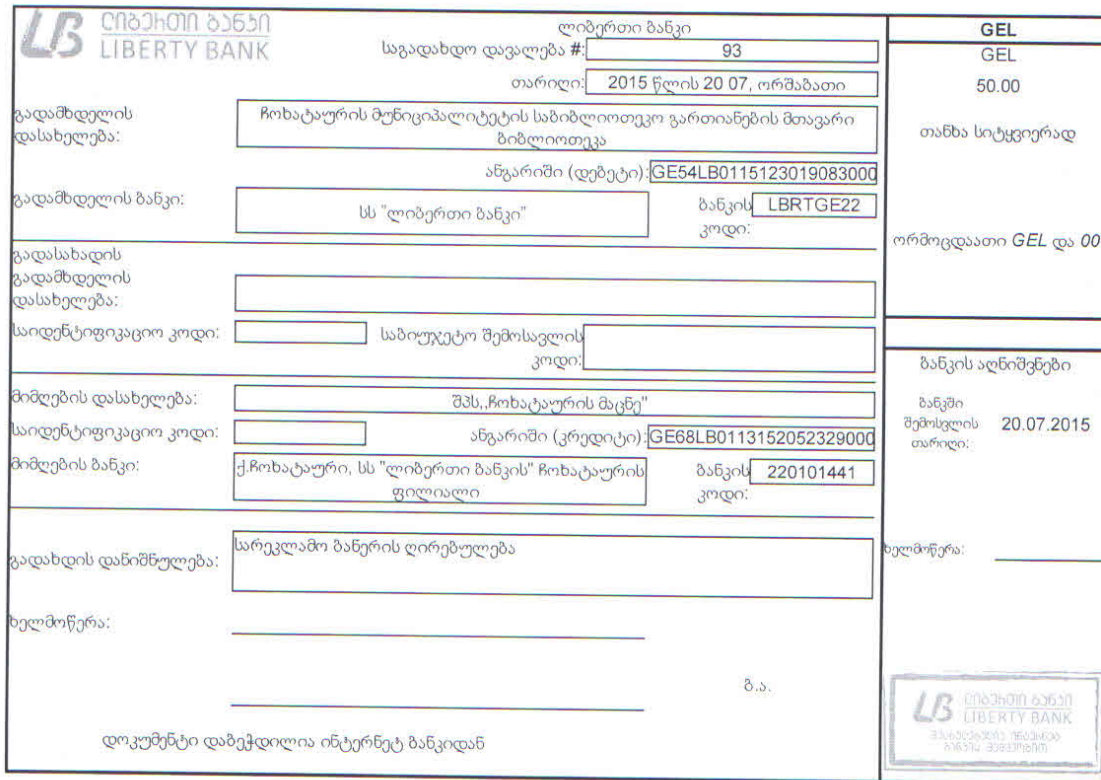 ლიბერთი ბანკი
LIBERTY BANK
ლიბერთი ბანკი
საგადახდო დავალება #: 93
თარიღი: 2015 წლის 20 07, ორშაბათი
გადამხდელის
დასახელება:
ჩოხატაურის მუნიციპალიტეტის საბიბლიოთეკო გართიანების მთავარი
ბიბლიოთეკა
ანგარიში (დებეტი): GE54LB0115123019083000
გადამხდელის ბანკი: სს "ლიბერთი ბანკი"
ბანკის
კოდი:
LBRTGE22
გადასახადის
გადამხდელის
დასახელება:
საიდენტიფიკაციო კოდი:
საბიუჯეტო შემოსავლის
კოდი:
მიმღების დასახელება: შპს,,ჩოხატაურის მაცნე"
საიდენტიფიკაციო კოდი:
ანგარიში (კრედიტი): GE68LB0113152052329000
მიმღების ბანკი:
ქ.ჩოხატაური, სს "ლიბერთი ბანკის" ჩოხატაურის
ფილიალი
ბანკის
კოდი:
220101441
გადახდის დანიშნულება: სარეკლამო ბანერის ღირებულება
ხელმოწერა:
ბ.ა.
დოკუმენტი დაბეჭდილია ინტერნეტ ბანკიდან
GEL
GEL
50.00
თანხა სიტყვიერად
ორმოცდაათი GEL და 00
ბანკის აღნიშვნები
ბანკში
შემოსვლის
თარიღი:
20.07.2015
ხელმოწერა:
ლიბერთი ბანკი
LIBERTY BANK